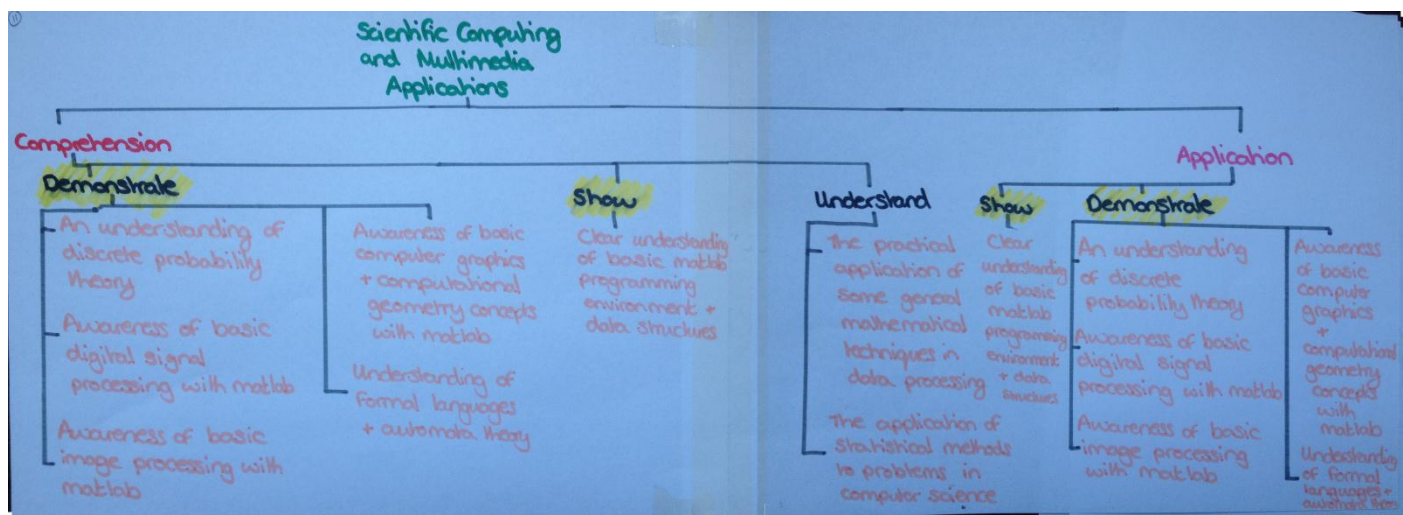 11
Scientific Computing
and Multimedia
Applications
Comprehension
Demonstrate
An understanding of
discrete probability
theory
Awareness of basic
digital signal
processing with matlab
Awareness of basic
image processing with
matlab
Awareness of basic
computer graphics
+ computational
geometry concepts
with matlab
Understanding of
formal languages
+ automata theory
Show
Clear understanding
of basic matlab
programming
environment +
data structures
Understand
The practical
application of
some general
mathematical
techniques in
data processing
The application of
statistical methods
to problems in
computer science
Application
Show
Clear
understanding
of basic
matlab
programming
environment
+ data
structures
Demonstrate
An understanding
of discrete
probability theory
Awareness of basic
digital signal
processing with matlab
Awareness of basic
image processing
with matlab
Awareness
of basic
computer
graphics
+
computational
geometry
concepts
with
matlab
Understanding
of formal
languages +
automata theory